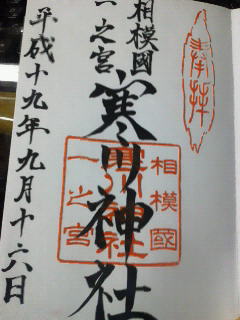 奉拝
相模國
一之宮
寒川神社
平成十九年九月十六日
相模國
寒川神社
一之宮